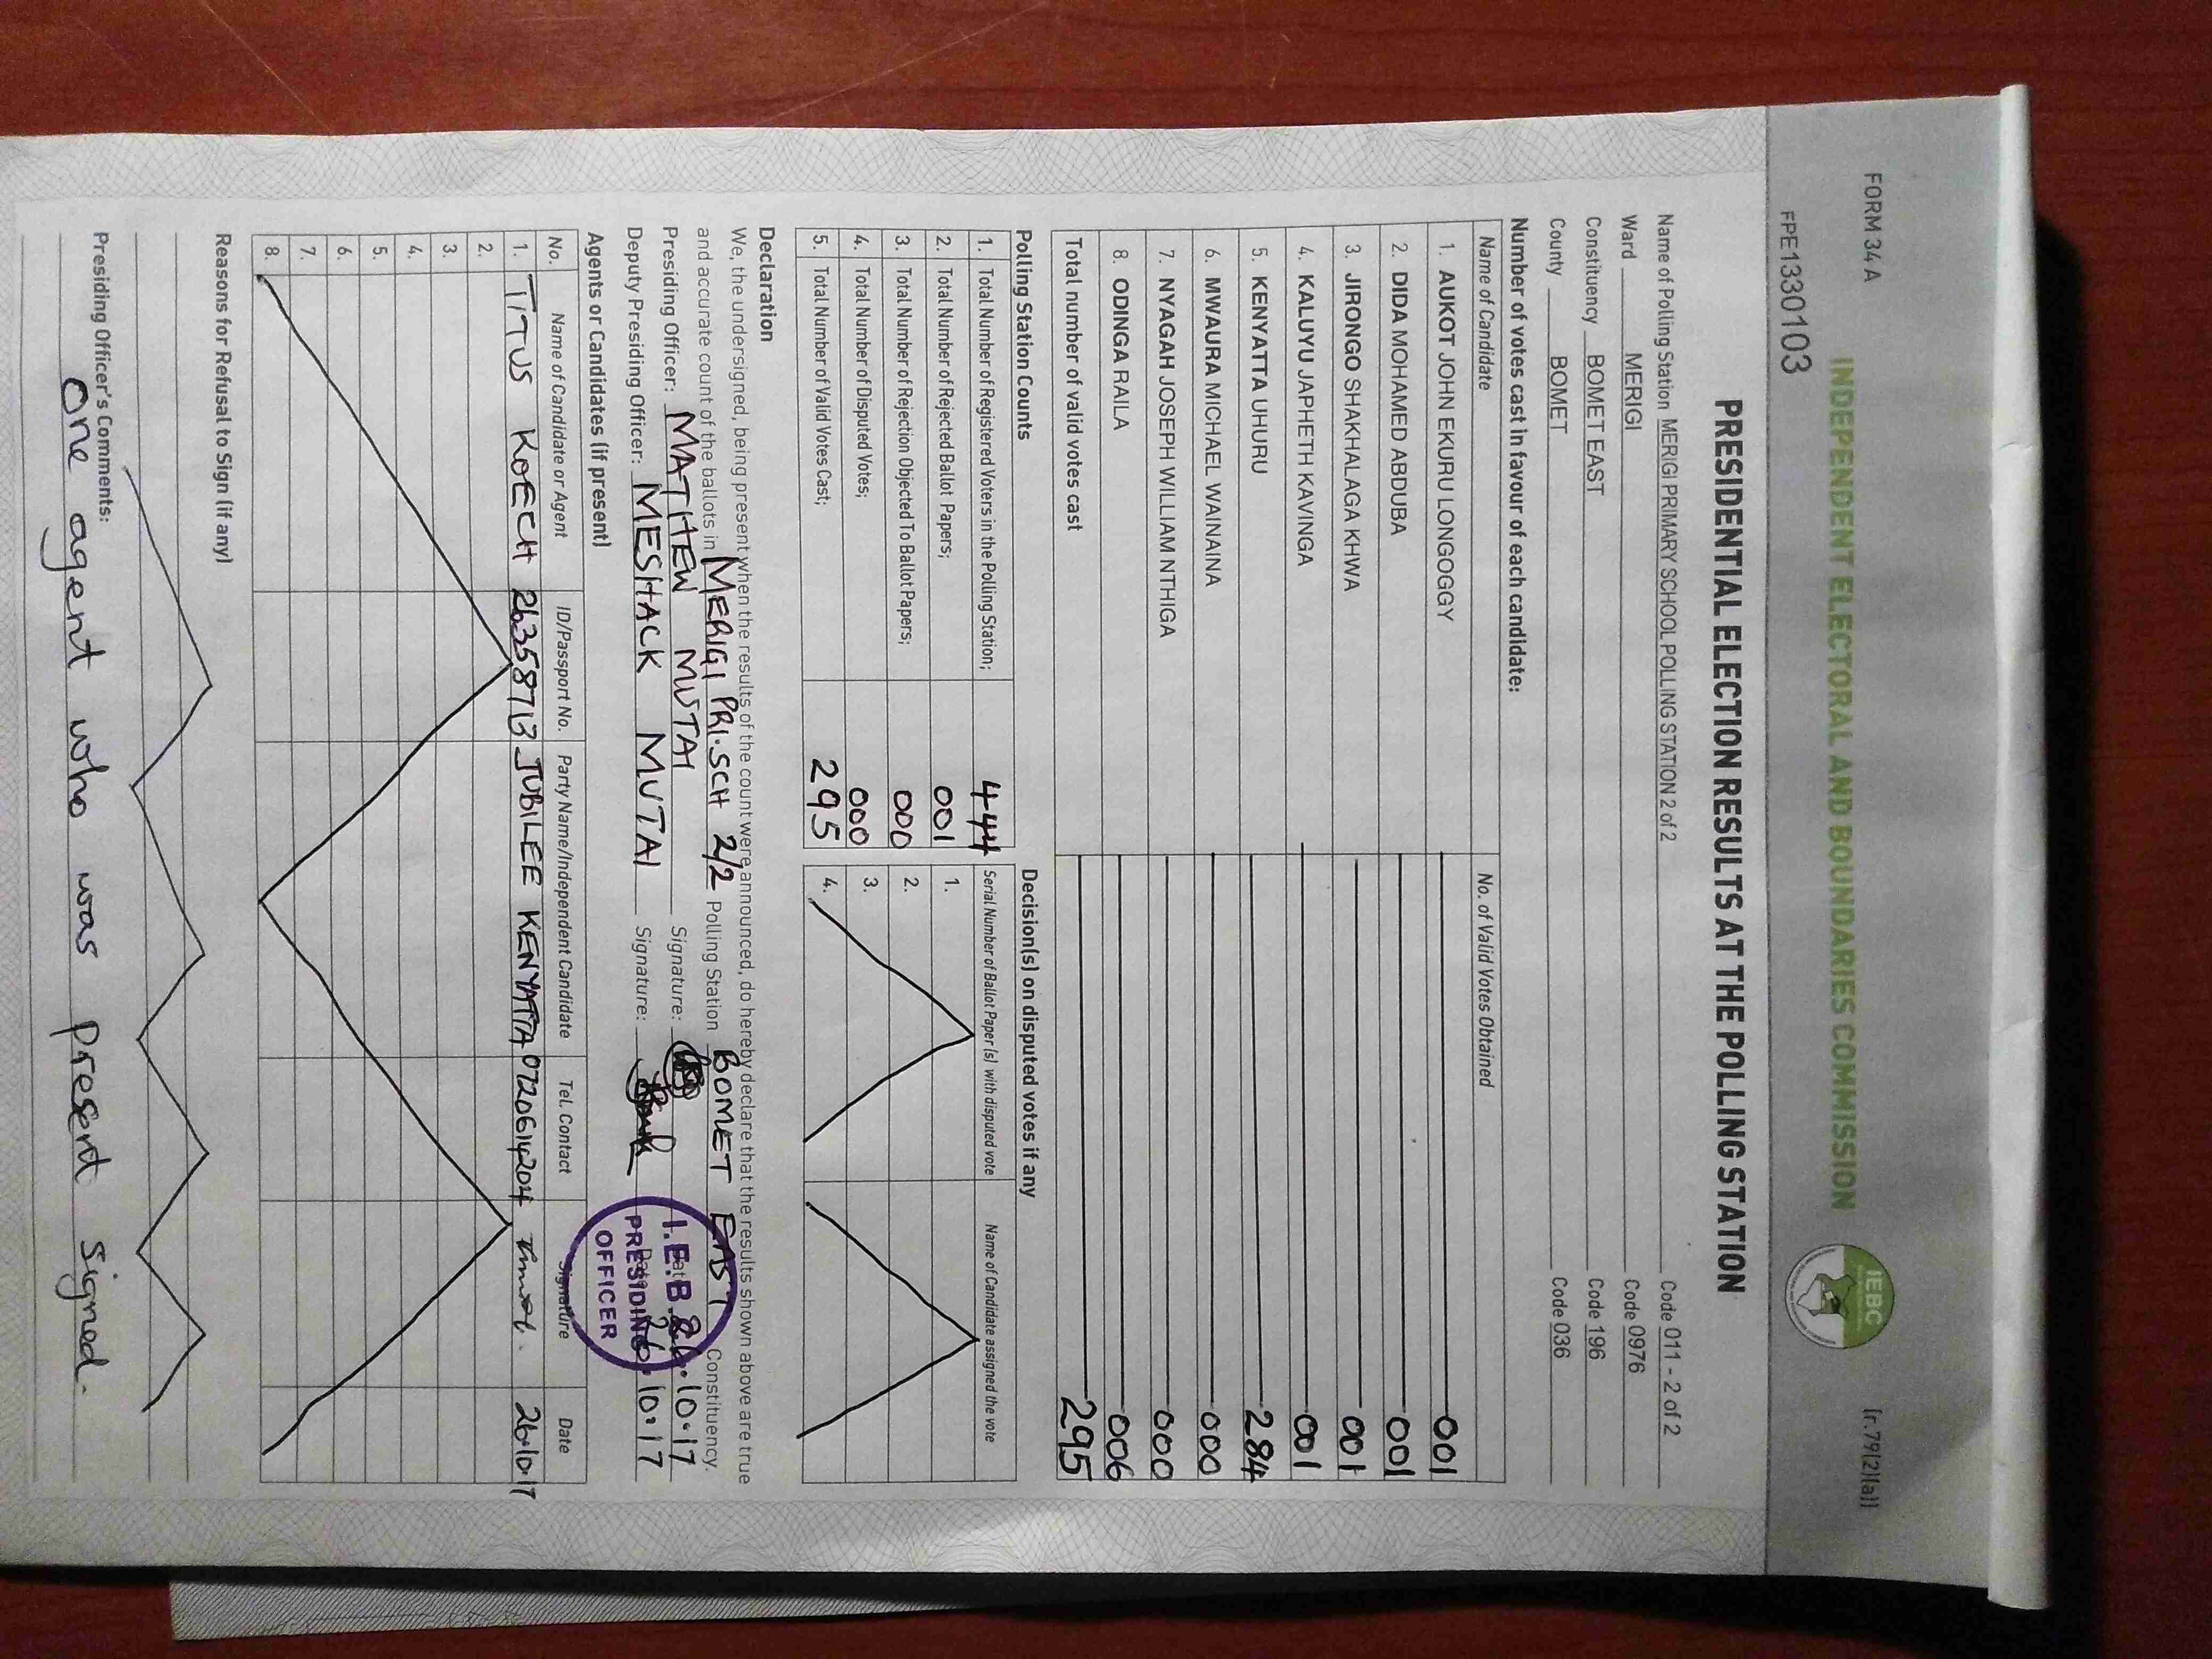 FORM 34 A
(r.79(2)(a))
INDEPENDENT ELECTORAL AND BOUNDARIES COMMISSION
IEBC
FPE1330103
PRESIDENTIAL ELECTION RESULTS AT THE POLLING STATION
Name of Polling Station MERIGI PRIMARY SCHOOL POLLING STATION 2 of 2 Code 011 - 2 of 2
Ward MERIGI Code 0976
Constituency BOMET EAST Code 196
County BOMET Code 036
Number of votes cast in favour of each candidate:
Name of Candidate No. of Valid Votes Obtained
1. AUKOT JOHN EKURU LONGOGGY 001
2. DIDA MOHAMED ABDUBA 001
3. JIRONGO SHAKHALAGA KHWA 001
4. KALUYU JAPHETH KAVINGA 001
5. KENYATTA UHURU 284
6. MWAURA MICHAEL WAINAINA 000
7. NYAGAH JOSEPH WILLIAM NTHIGA 000
8. ODINGA RAILA 006
Total number of valid votes cast 295
Polling Station Counts
1. Total Number of Registered Voters in the Polling Station; 444
2. Total Number of Rejected Ballot Papers; 001
3. Total Number of Rejection Objected To Ballot Papers; 000
4. Total Number of Disputed Votes; 000
5. Total Number of Valid Votes Cast; 295
Decision(s) on disputed votes if any
Serial Number of Ballot Paper (s) with disputed vote Name of Candidate assigned the vote
1.
2.
3.
4.
Declaration
We, the undersigned, being present when the results of the count were announced, do hereby declare that the results shown above are true
and accurate count of the ballots in MERIGI PRI.SCH 2/2 Polling Station BOMET EAST Constituency.
Presiding Officer: MATHEW MUTAI Signature: Date 26.10.17
Deputy Presiding Officer: MESHACK MUTAI Signature: Date 26.10.17
I.E.B.
PRESIDING
OFFICER
Agents or Candidates (if present)
No. Name of Candidate or Agent ID/Passport No. Party Name/Independent Candidate Tel. Contact Signature Date
1. TITUS KOECH 26358713 JUBILEE KENYATTA 0720614204 26.10.17
2.
3.
4.
5.
6.
7.
8.
Reasons for Refusal to Sign (if any)
Presiding Officer's Comments:
One agent who was present signed.